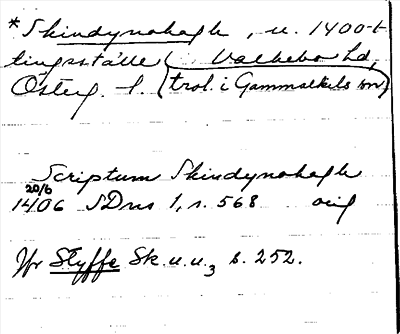 *Skindynahagh, u. 1400-t
tingsställe (Valkebo hd,
Österg. l. (trol. i Gammalkils sn)
Scriptum Skindynahagh
20/6
1406 SDns 1, s. 568 orig
Jfr Styffe Sk.u.u.3 s. 252.